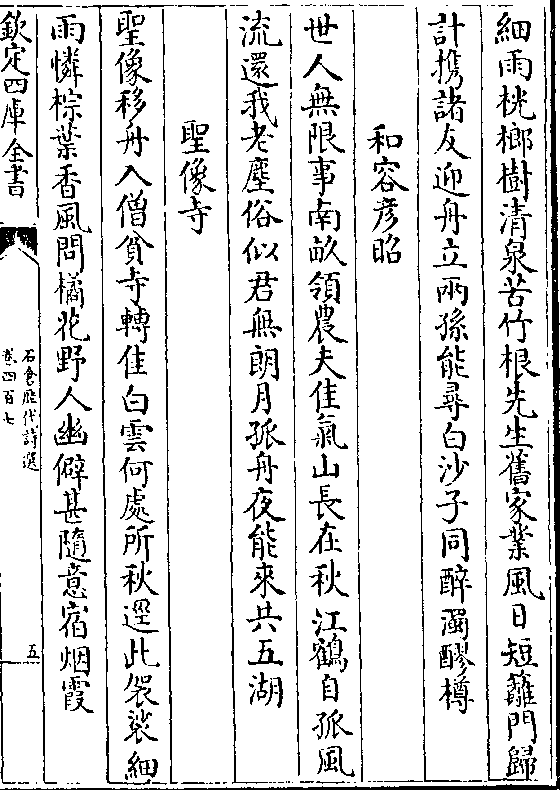 細雨桄榔樹清泉苦竹根先生舊家業風日短籬門歸
計攜諸友迎舟立兩孫能尋白沙子同醉濁醪樽
和容彥昭
世人無限事南畝領農夫佳氣山長在秋江鶴自孤風
流還我老塵俗似君無朗月孤舟夜能來共五湖
聖像寺
聖像移舟入僧貧寺轉佳白雲何處所秋逕此袈裟細
雨憐棕葉香風問橘花野人幽僻甚隨意宿烟霞
欽定四庫全書
石倉歷代詩選
卷四百七
五